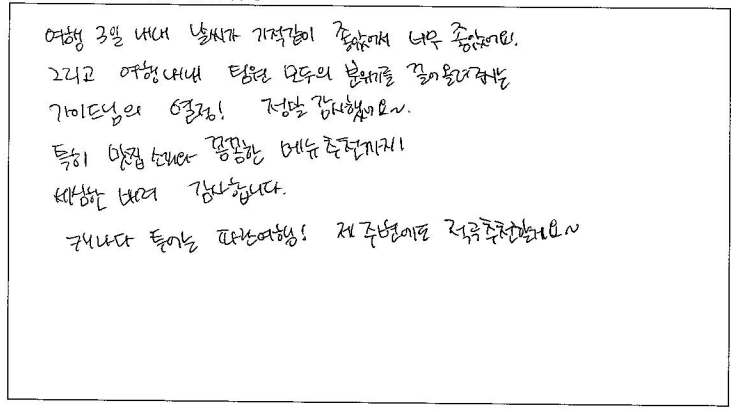 여행 3일 내내 날씨가 기적같이 좋았어서 너무 좋았어요.
그리고 여행내내 팀원 모두의 분위기를 끌어올려주시는
가이드님의 열정! 정말 감사했어요~.
특히 맛집 소개와 꼼꼼한 메뉴 추천까지!
세심한 배려 감사합니다.
캐나다 투어는 파란여행! 제 주변에도 적극추천할게요~